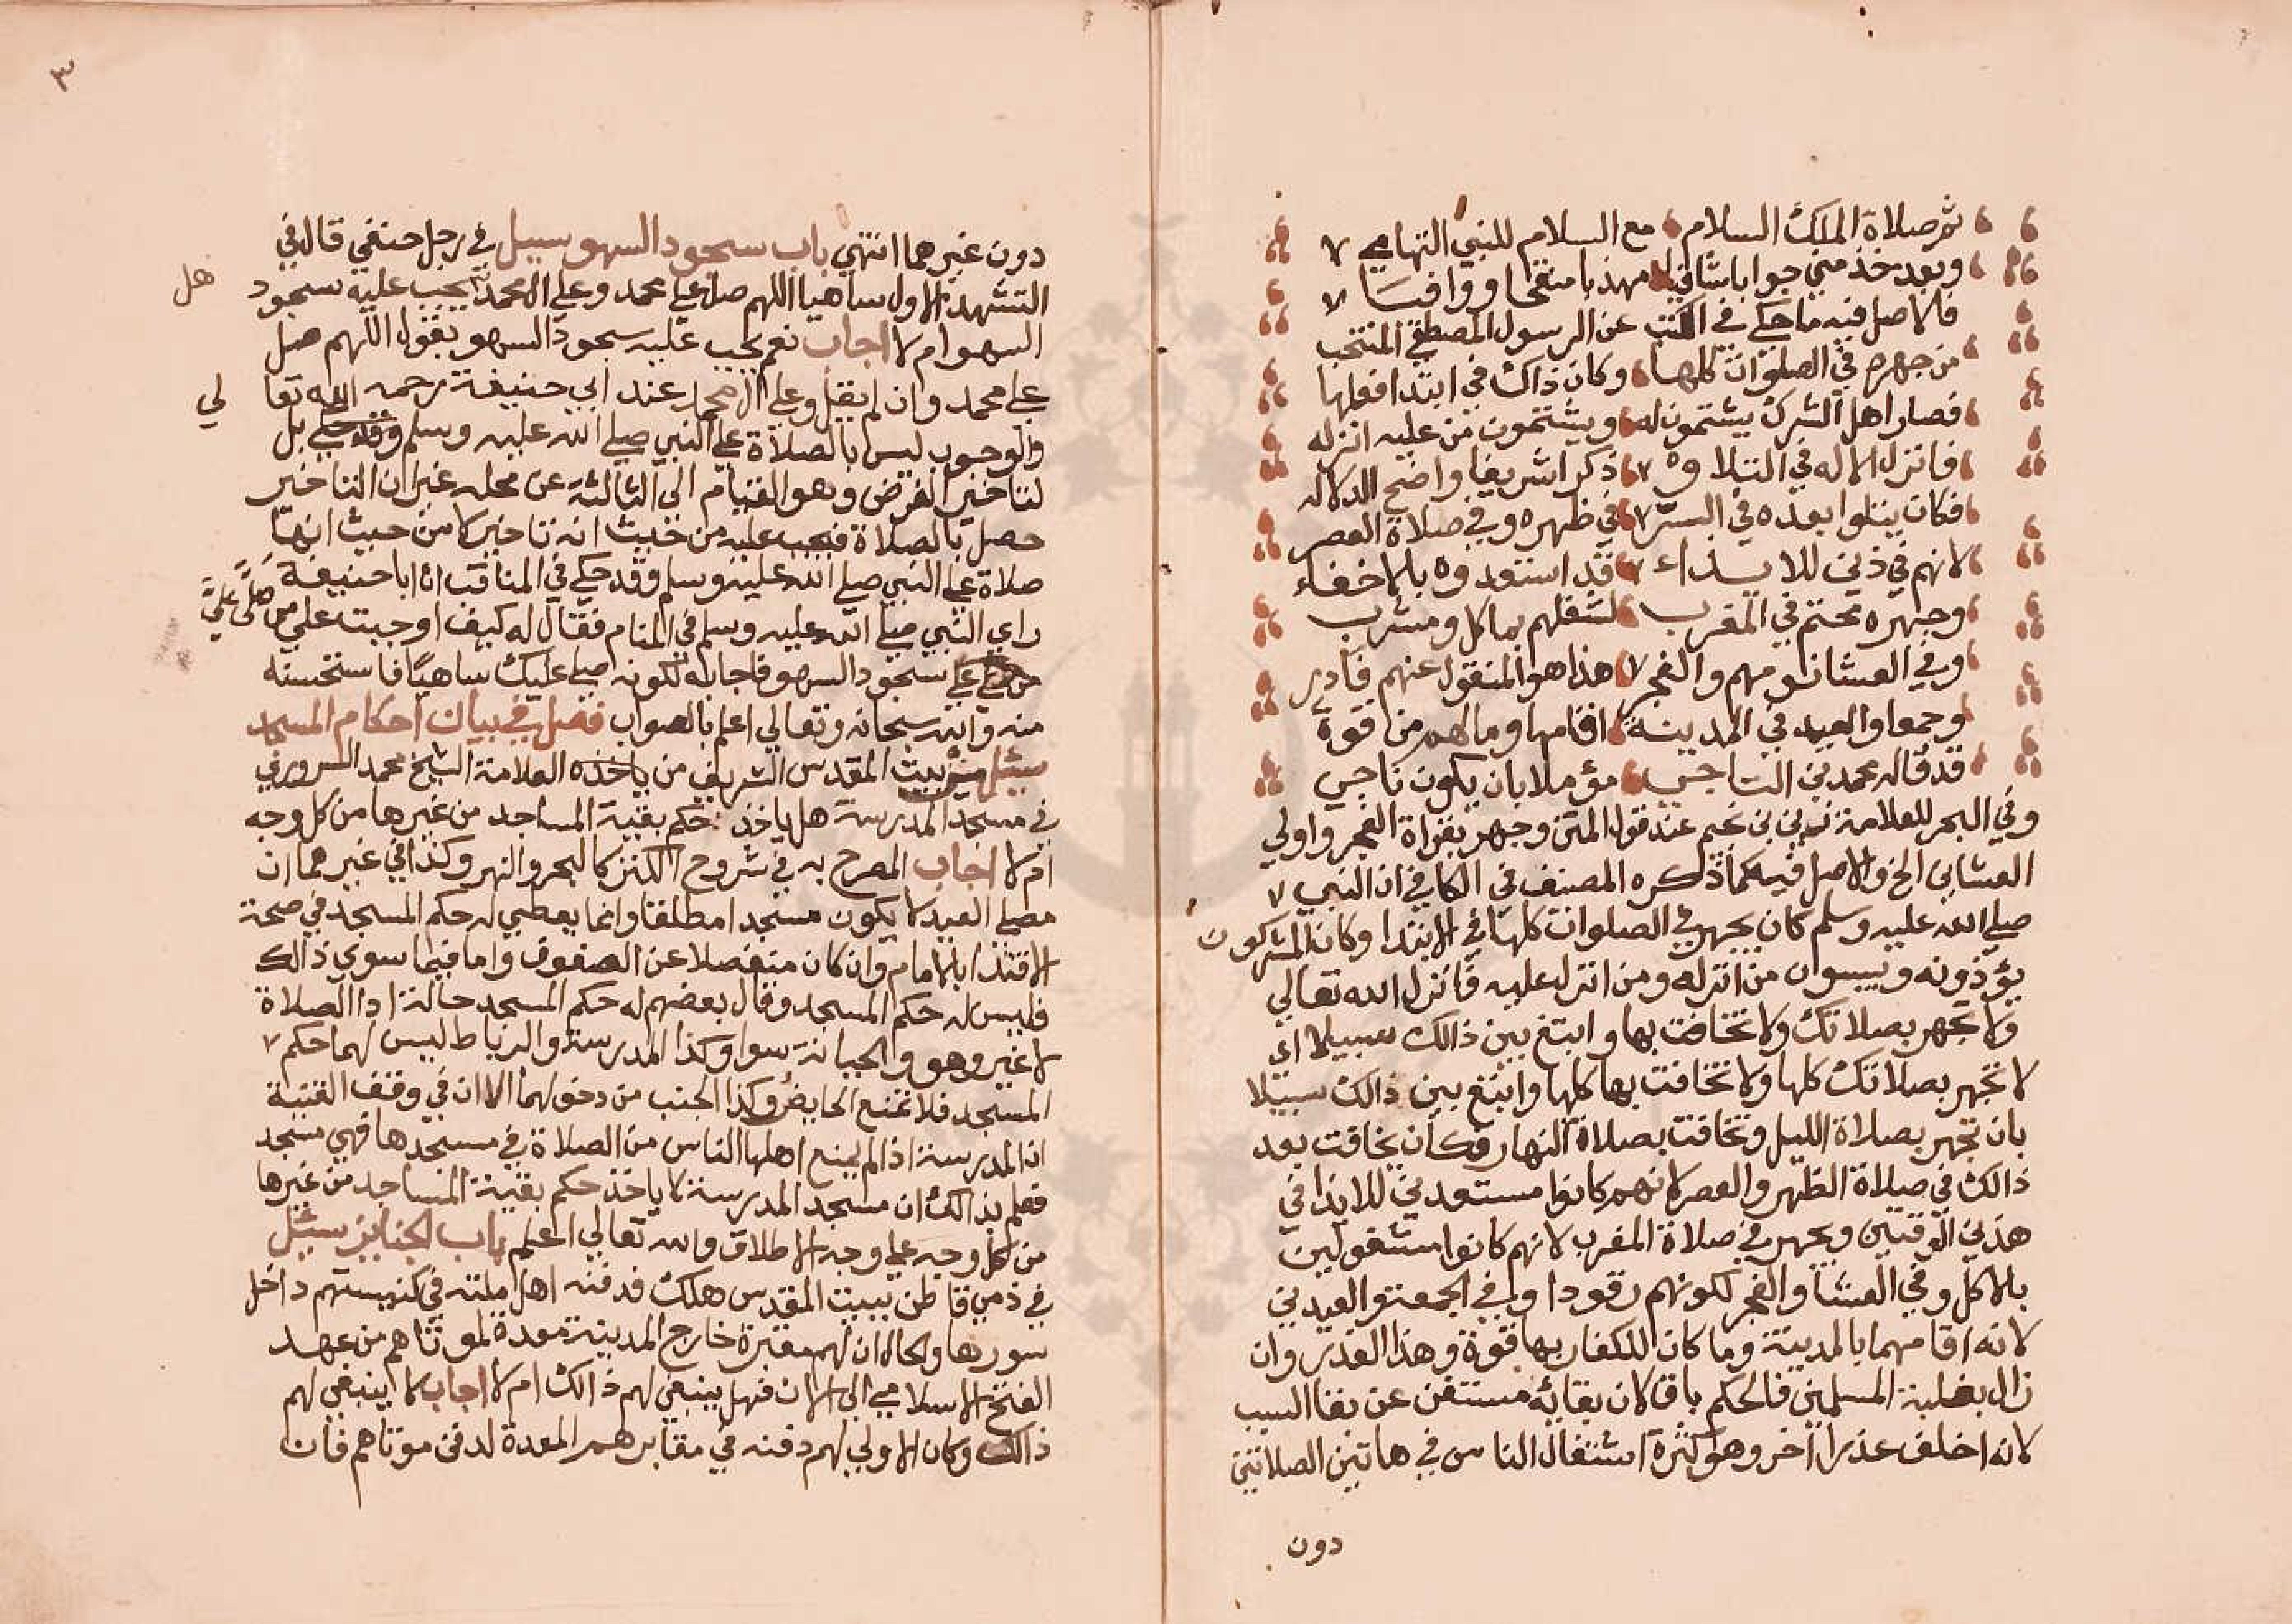 ثم صلاة الملك السلام مع السلام للنبي التهامي
وبعد خذ مني جوابا شافيا مهذبا منقحا ووافيا
فالاصل فيه ما حكي في الكتب عن الرسول المصطفي المنتخب
من جهره في الصلوات كلها وكان ذاك في ابتدا فعلها
فصار اهل الشرك يشتمون له ويشتمون من عليه انزله
فانزل الاله في التلاوه ذكرا شريفا واضح الدلاله
فكان يتلوا بعده في السر في ظهره وفي صلاة العصر
لانهم في ذين للايذاء قد استعدوه بالاخفاء
وجهره محتم في المغرب لشغلهم بماكل ومشرب
وفي العشا نومهم والفجر هذا هو المنقول عنهم فادر
وجمعا والعيد في المدينة اقامها وما لهم من قوة
قد قاله محمد بن التاجي مؤملا بان يكون ناجي
وفي البحر للعلامة زين بن نجيم عند قول المتن وجهر بقراة الفجر واولي
العشاين الخ والاصل فيه كما ذكره المصنف في الكافي ان النبي
صلي الله عليه وسلم كان يجهر في الصلوات كلها في الابتدا وكان المشركون
يؤذونه ويسبون من انزله ومن انزل عليه فانزل الله تعالي
ولا تجهر بصلاتك ولا تخافت بها وابتغ بين ذالك سبيلا اي
لا تجهر بصلاتك كلها ولا تخافت بها كلها وابتغ بين ذالك سبيلا
بان تجهر بصلاة الليل وتخافت بصلاة النهار وكان يخافت بعد
ذالك في صلاة الظهر والعصر لانهم كانوا مستعدين للايذا في
هذين الوقتين ويجهر في صلاة المغرب لانهم كانوا مشغولين
بالاكل وفي العشا والفجر لكونهم رقودا وفي الجمعة والعيدين
لانه اقامهما بالمدينة وما كان للكفار بها قوة وهذا العذر وان
زال بغلبة المسلمين فالحكم باق لان بقائه مستغن عن بقا السبب
لانه اخلف عذرا اخر وهو كثرة اشتغال الناس في هاتين الصلاتين
دون
٣
دون غيرهما انتهي باب سجود السهو سيل في رجل حنفي قال في
التشهد الاول ساهيا اللهم صل علي محمد وعلي ال محمد يجب عليه سجود
هل
السهو ام لا اجاب نعم يجب عليه سجود السهو بقول اللهم صل
علي محمد وان لم يقل وعلي ال محمد عند ابي حنيفة رحمه الله تعا
لي
والوجوب ليس بالصلاة علي النبي صلي الله عليه وسلم بل
لتاخير الفرض وهو القيام الي الثالثة عن محله غير ان التاخير
حصل بالصلاة فيجب عليه من حيث انه تاخير لا من حيث انها
صلاة علي النبي صلي الله عليه وسلم وقد حكي في المناقب ان ابا حنيفة
راي النبي صلي الله عليه وسلم في المنام فقال له كيف اوجبت علي من صلَّى عَلَيَّ
سجود السهو فاجابه لكونه صلي عليك ساهيا فاستحسنه
منه والله سبحانه وتعالي اعلم بالصواب فصل في بيان احكام المسجد
سئل بيت المقدس الشريف من العلامة الشيخ محمد السروري
في مسجد المدرسة هل ياخذ حكم بقية المساجد من غيرها من كل وجه
ام لا اجاب المصرح به في شروح الكنز كالبحر والنهر وكذا في غيرهما ان
مصلي العيد لا يكون مسجدا مطلقا وانما يعطي له حكم المسجد في صحة
الاقتدا بالامام وان كان منفصلا عن الصفوف واما فيما سوي ذالك
فليس له حكم المسجد وقال بعضهم له حكم المسجد حالة ادا الصلاة
لا غير وهو والجبانة سوا وكذا المدرسة والرباط ليس لهما حكم
المسجد فلا تمنع الحايض وكذا الجنب من دخولهما الا ان في وقف القنية
ان المدرسة اذا لم يمنع اهلها الناس من الصلاة في مسجدها فهي مسجد
فعلم بذالك ان مسجد المدرسة لا ياخذ حكم بقية المساجد من غيرها
من كل وجه علي وجه الاطلاق والله تعالي اعلم باب الجنايز سئل
في ذمي قاطن ببيت المقدس هلك فدفنه اهل ملته في كنيستهم داخل
سورها والحال ان لهم مقبرة خارج المدينة معدة لموتاهم من عهد
الفتح الاسلامي الي الان فهل ينبغي لهم ذالك ام لا اجاب لا ينبغي لهم
ذالك وكان الاولي لهم دفنه في مقابرهم المعدة لدفن موتاهم فان